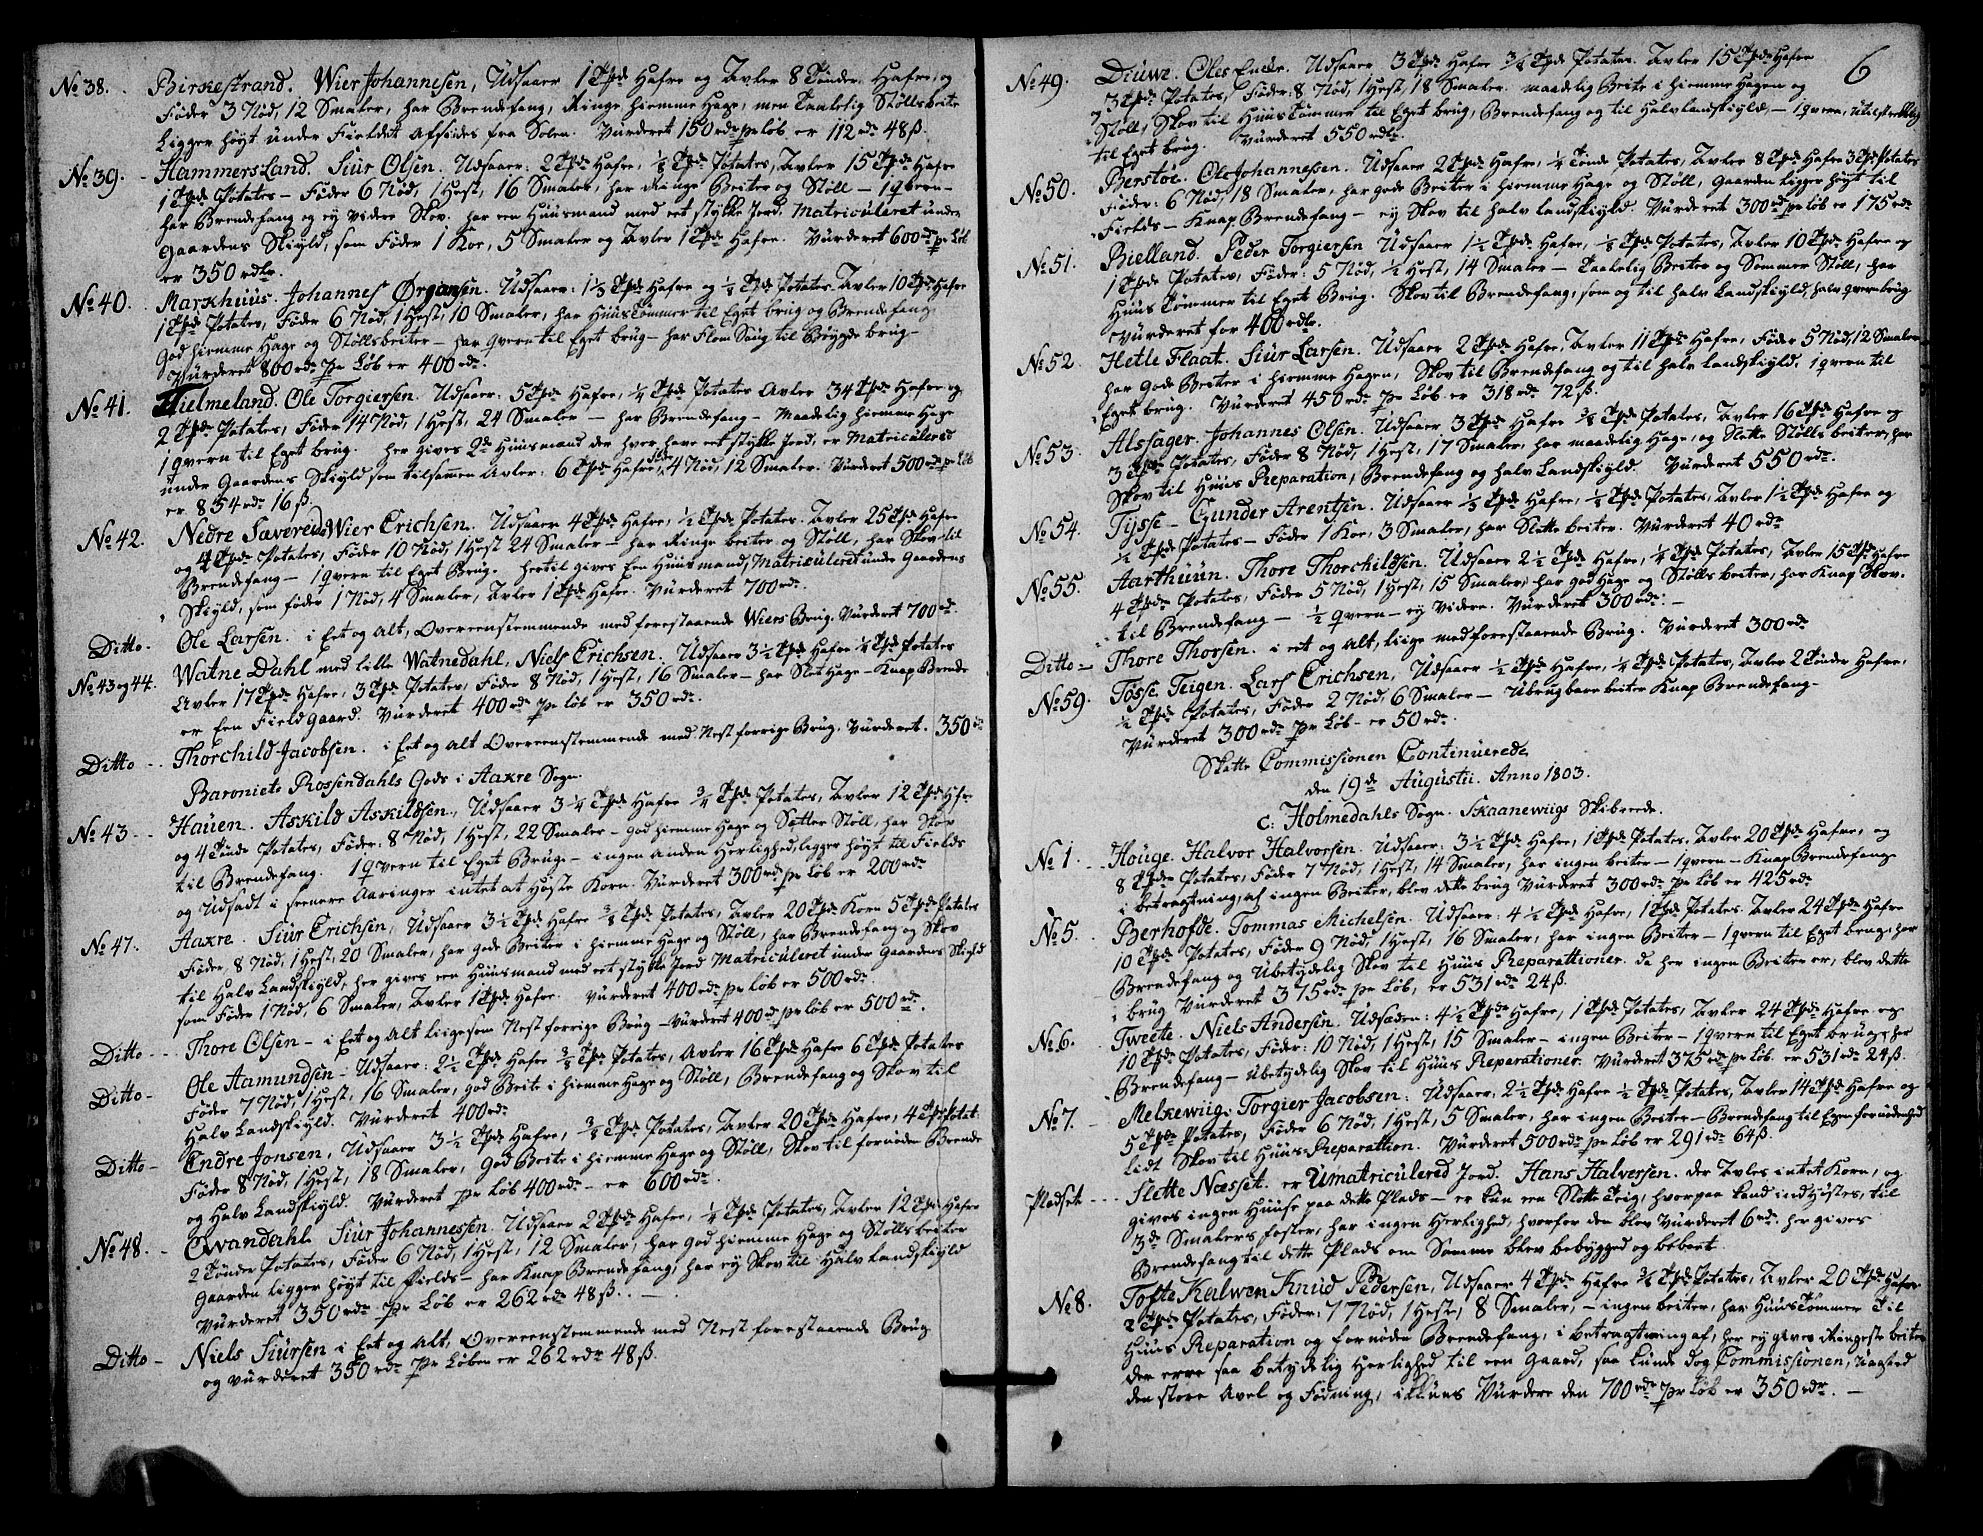 No 38. Birkestrand. Wier Johannesen, Udsaaer 1 Tpd. Hafre og Avler 8 Tönder Hafre, og
Föder 3 Nöd, 12 Smaler, har Brendefang, Ringe hiemme Hage, men Taalelig Stöllsbeite
Ligger höyt under Fieldet Afsides fra Solen. Vurderet 150 rdr pr Löb er 112 rdr 48 ß.
No 39. Hammersland. Siur Olsen. Udsaaer: 2 Tpd. Hafre, 1/8 Tpd. Potates, Avler 15 Tpd. Hafre
1 Tpd. Potates – Föder 6 Nöd, 1 Hest, 16 Smaler, har Ringe Beiter og Stöll – 1 qvern –
har Brendefang og ey videre Skov. har een Huusmand med eet stykke Jord, Matriculeret under
Gaardens Skyld, som Föder 1 Kor, 5 Smaler og Avler 1 Tpd. Hafre. Vurderet 600 rdr pr Löb
er 350 rdlr.
No 40. Markhuus. Johannes Ørjansen. Udsaaer: 1 1/3 Tpd. Hafre og 1/8 Tpd. Potates Avler 10 Tpd. Hafre
1 Tpd. Potates, Föder 6 Nöd, 1 Hest, 10 Smaler, har Huustömmer til Eget brug og Brendefang
God hiemme Hage og Stöllsbeiter – har qvern til Eget brug – har Flom Saug til Bøygde brug –
Vurderet 800 rdr pr Löb er 400 rdr.
No 41. Hielmeland. Ole Torgiersen. Udsaaer: 5 Tpd. Hafre, 1/4 Tpd. Potates Avler 34 Tpd. Hafre og
2 Tpd. Potates, Föder 14 Nöd, 1 Hest, 24 Smaler – har Brendefang – Maadelig hiemme Hage
1 qvern til Eget brug. her gives 2de Huusmand der hver have eet stykke Jord, er Matriculered
under Gaardens Skyld som tilsammen Avler: 6 Tpd. Hafre, föder 4 Nöd, 12 Smaler. Vurderet 500 rdr pr Löb
er 854 rdr 16 ß.
No 42. Nedre Sævereid Wier Erichsen. Udsaaer 4 Tpd. Hafre, 1/2 Tpd. Potates. Avler 25 Tpd. Hafre
og 4 Tpd. Potates, Föder 10 Nöd, 1 Hest 24 Smaler – har Ringe beiter og Stöll, har Skov til
Brendefang – 1 qvern til Eget Brug. hertil gives Een Huusmand, Matriculeret under Gaardens
Skyld, som föder 1 Nöd, 4 Smaler, Avler 1 Tpd. Hafre. Vurderet 700 rdr.
Ditto - Ole Larsen. i Eet og Alt, Overeenstemmende med forestaaende Wiers Brug. Vurderet 700 rdr.
No 43 og 44. Watne Dahl med lille Watnedahl, Niels Erichsen. Udsaaer 3 1/2 Tpd. Hafre 1/4 Tpd. Potates
Avler 17 Tpd. Hafre, 3 Tpd. Potates, Föder 8 Nöd, 1 Hest, 16 Smaler – har Slet Hage – Knap Brende
er Een Field Gaard. Vurderet 400 rdr pr Löb er 350 rdr.
Ditto - Thorchild Jacobsen. i Eet og Alt Overeenstemmende med Nest forrige Brug. Vurderet. 350 rdr
Baroniets Rossendahls Gods i Aakre Sogn.
No 43 - - Hauen. Askild Askildsen, Udsaaer 3 1/4 Tpd. Hafre 3/4 Tpd. Potates, Avler 12 Tpd. Hafre
og 4 Tönde Potates, Föder: 8 Nöd, 1 Hest, 22 Smaler – God hiemme Hage og Sætter Stöll, har Skov
til Brendefang. 1 qvern til Eget Brug – ingen anden Herlighed, ligger höyt til Fields
og Udsadt i seenere Aaringer intet at Høste Korn. Vurderet 300 rdr pr Löb er 200 rdr
No 47. Aakre. Siur Erichsen, Udsaaer 3 1/2 Tpd. Hafre 3/8 Tpd. Potates, Avler 20 Tpd. Korn 5 Tpd. Potates
Föder, 8 Nöd, 1 Hest, 20 Smaler, har gode Beiter i hiemme Hage og Stöll, har Brendefang og Skov
til Halv Landskyld, her gives een Huusmand med eet stykke Jord Matriculeret under Gaardens Skyld
som Föder 1 Nöd, 6 Smaler, Avler 1 Tpd. Hafre. Vurderet 400 rdr pr Löb er 500 rdr.
Ditto - - Thore Olsen – i Eet og Alt liigesom Nest forrige Brug – Vurderet 400 rd pr Löb er 500 rd.
Ditto - Ole Aamundsen – Udsaaer: 2 1/2 Tpd. Hafre 3/8 Tpd. Potates, Avler 16 Tpd. Hafre 6 Tpd. Potates
Föder 7 Nöd, 1 Hest, 16 Smaler, god Beite i hiemme Hage og Stöll, Brendefang og Skov til
Halv Landskyld. Vurderet 400 rdr
Ditto - Endre Jonsen, Udsaaer 3 1/2 Tpd. Hafre, 3/8 Tpd. Potates, Avler 20 Tpd. Hafre, 4 Tpd. Potat:
Föder 8 Nöd, 1 Hest, 18 Smaler, God Beite i hiemme Hage og Stöll, Skov til fornöden Brende
og Halv Landskyld. Vurderet pr Löb 400 rdr – er 600 rdr.
No 48. - Ewandahl Siur Johannessen. Udsaaer 2 Tpd. Hafre, 1/4 Tpd. Potates, Avler 12 Tpd. Hafre
2 Tönder Potates, Föder 6 Nöd, 1 Hest, 12 Smaler, har God hiemme Hage og Stöllsbeiter
Gaarden ligger höyt til Fields – har Knap Brendefang, har ey Skov til Halv Landskyld
Vurderet 350 rdr pr Löb er 262 rdr 48 ß. –
Ditto - Niels Siursen i Eet og Alt, Overeenstemmende med Nest forestaaende Brug
og vurderet 350 rdr pr Löben er 262 rdr 48 ß.
6
No 49. Diuwe. Ole Endr. Udsaaer 3 Tpd. Hafre 3/8 Tpd. Potates. Avler 15 Tpd. Hafre
3 Tpd. Potates, Föder: 8 Nöd, 1 Hest, 18 Smaler. maadelig Beite i hiemme Hagen og
Stöll, Skov til Huustömmer til Eget brug, Brendefang og til Halv landskyld, – 1 qvern, utilstrekkelig
til Eget brug. Vurderet 550 rdlr.
No 50. Berstöe. Ole Johannesen. Udsaaer 2 Tpd. Hafre, 1/4 Tönde Potates, Avler 8 Tpd. Hafre 3 Tpd. Potates
Föder: 6 Nöd, 18 Smaler, har gode Beiter i hiemme Hage og Stöll, Gaarden ligger höyt til
Fields – Knap Brendefang – ey Skov til halv Landskyld. Vurderet 300 rdr pr Löb er 175 rdr
No 51. Bielland. Peder Torgiersen Udsaaer 1 1/2 Tpd. Hafre, 1/8 Tpd. Potates, Avler 10 Tpd. Hafre og
1 Tpd. Potates, Föder: 5 Nöd, 1/2 Hest, 14 Smaler – Taalelig Beiter og Sommer Stöll, har
Huus Tömmer til Eget Brug. Skov til Brendefang, som og til halv Landskyld, halv qvern brug
Vurderet for 400 rdlr.
No 52. Hetle Flaat. Siur Larsen. Udsaaer 2 Tpd. Hafre, Avler 11 Tpd. Hafre, Föder 5 Nöd, 12 Smaler
har Gode Beiter i hiemme Hagen, Skov til Brendefang og til halv Landskyld. 1 qvern til
Eget brug. Vurderet 450 rdr pr Löb er 318 rdr 72 ß.
No 53. Alssager. Johannes Olsen. Udsaaer 3 Tpd. Hafre 3/8 Tpd. Potates, Avler 16 Tpd. Hafre og
3 Tpd. Potates, Föder 8 Nöd, 1 Hest, 17 Smaler, har maadelig Hage, og Slette Stölls beiter, har
Skov til Huus Preparation, Brendefang og halv Landskyld. Vurderet 550 rdr.
No 54. Tysse – Gunder Arentsen. Udsaaer 1/3 Tpd. Hafre, 1/2 Tpd. Potates, Avler 1 1/2 Tpd. Hafre og
1/2 Tpd. Potates – Föder 1 Kor, 3 Smaler, har Slette beiter. Vurderet 40 rdr
No 55. Aarthuun. Thore Thorchildsen. Udsaaer 2 1/2 Tpd. Hafre, 1/4 Tpd. Potates, Avler 15 Tpd. Hafre
4 Tpd. Potates, Föder 5 Nöd, 1 Hest, 15 Smaler, har god Hage og Stölls beiter, har Knap Skov
til Brendefang – 1/2 qvern – ey Videre. Vurderet 300 rdr. –
Ditto – Thore Thorsen. i eet og Alt, liige med forestaaende Brug. Vurderet 300 rdr
No 59. Tösse Teigen. Lars Erichsen, Udsaaer 1/2 Tpd. Hafre, 1/4 Tpd. Potates, Avler 2 Tönder Hafre,
1/2 Tpd. Potates, Föder 2 Nöd, 6 Smaler – Ubrugbare beiter Knap Brendefang –
Vurderet 300 rdr pr Löb – er 50 rdr.
Skatte Commissionen Continuerede
den 19de Augustii. Anno 1803.
C: Holmedahls Sogn. Skaanewiigs Skibrede.
No 1. Houge. Halvor Halvorsen. Udsaaer: 3 1/2 Tpd. Hafre, 1 Tpd. Potates. Avler 20 Tpd. Hafre, og
8 Tpd. Potates, Föder 7 Nöd, 1 Hest, 14 Smaler, har ingen beiter – 1 qvern – Knap Brendefang
i betragtning, af ingen Beiter, blev dette brug Vurderet 300 rdr pr Löb er 425 rdr
No 5. Berhofde. Tommas Michelsen. Udsaaer: 4 1/2 Tpd. Hafre, 1 Tpd. Potates. Avler 24 Tpd. Hafre
10 Tpd. Potates, Föder 9 Nöd, 1 Hest, 16 Smaler, har ingen Beiter – 1 qvern til Eget brug, har
Brendefang og Ubetydelig Skov til Huus Preparattioner. da her ingen Beiter er, blev dette
brug Vurderet 375 rdr pr Löb, er 531 rdr 24 ß.
No 6. Tweete. Niels Andersen. Udsæden: 4 1/2 Tpd. Hafre, 1 Tpd. Potates, Avler 24 Tpd. Hafre og
10 Tpd. Potates, Föder: 10 Nöd, 1 Hest, 15 Smaler – ingen Beiter – 1 qvern til Eget brug, har
Brendefang – Ubetydelig Skov til Huus Reparationer. Vurderet 375 rdr pr Löb. er 531 rdr 24 ß.
No 7. - Melkewiig. Torgier Jacobsen: Udsaaer: 2 1/2 Tpd. Hafre 1/2 Tpd. Potates, Avler 14 Tpd. Hafre og
5 Tpd. Potates, Föder 6 Nöd, 1 Hest, 5 Smaler, har ingen Beiter – Brendefang til Egen fornödenhed
lidt Skov til Huus Preparattion. Vurderet 500 rdr pr Löb er 291 rdr 64 ß.
Pladset - - Slette Næsset. er Umatriculered Jord. Hans Halversen. der Avles intet Korn, og
gives ingen Huuse paa dette Plads – er kun een Slette Teig, hvorpaa kand indhøstes, til
3de Smalers foster, har ingen Herlighed, hvorfor den blev Vurderet 6 rdr. her gives
Brendefang til dette Plads om Samme blev bebygged og beboet.
No 8. Tofte Kalwen Knud Pedersen, Udsaaer 4 Tpd. Hafre 3/4 Tpd. Potates, Avler 20 Tpd. Hafre
2 Tpd. Potates, Föder: 7 Nöd, 1 Hest, 8 Smaler, – ingen beiter, har Huus Tömmer til
Huus Reparation og fornöden Brendefang, i betragtning af, her ey gives Ringeste beiter
der erre saa betydelig Herlighed til een Gaard, saa kunde dog Commissionen, uagted
den store Avel og Födning, ikkuns Vurdere den 700 rdr pr Löb er 350 rdr. –